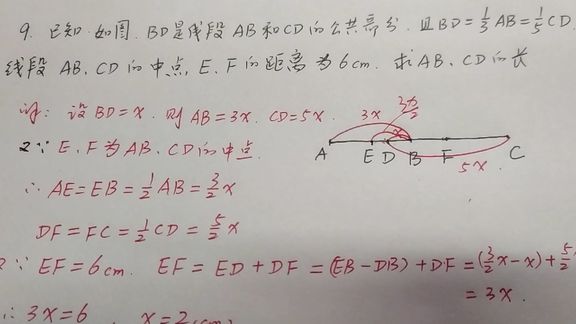 9. 已知如图. BD是线段AB和CD的公共部分. 且BD=1/3AB=1/5CD
线段AB、CD的中点E、F的距离为6cm. 求AB、CD的长
设BD=x. 则AB=3x. CD=5x.
3x
3/2x
x
A E D B F C
5x
∵ E、F为AB、CD的中点.
∴ AE=EB=1/2AB=3/2x
DF=FC=1/2CD=5/2x
∵ EF=6cm. EF=ED+DF=(EB-DB)+DF=(3/2x-x)+5/2x
=3x.
∴ 3x=6 x=2(cm)